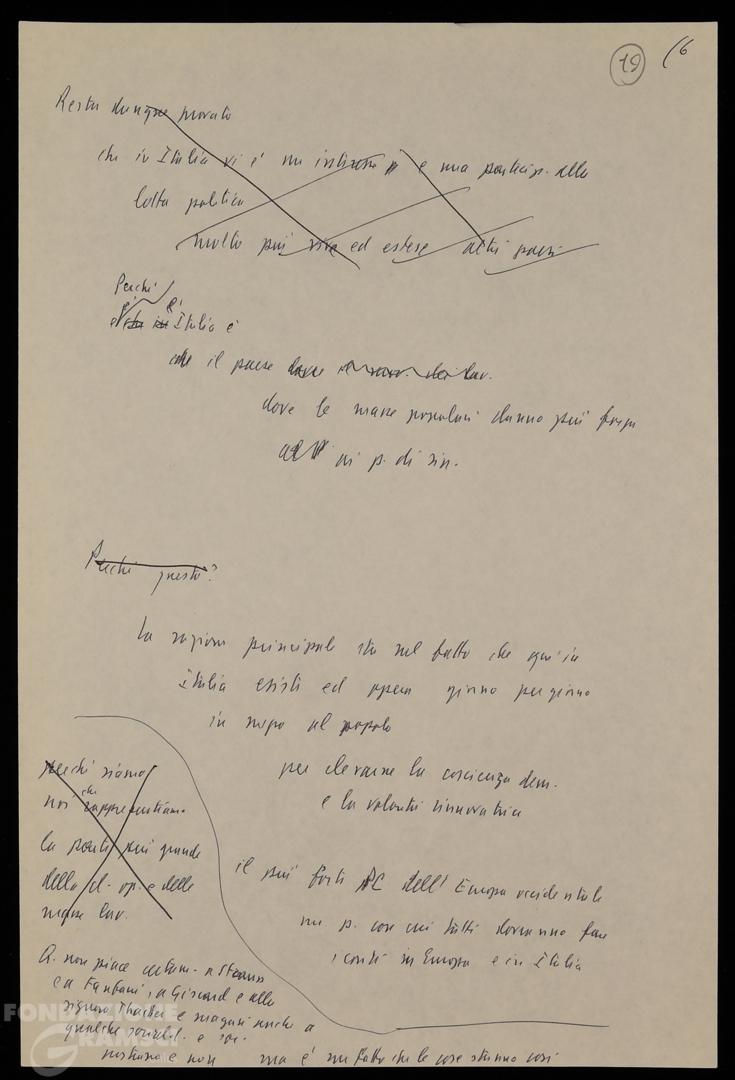 19 16
Resta dunque provato
che in Italia vi è un interesse e una partecip. alla
lotta politica
molto più viva ed estesa altri paesi
Perché
è
è Italia è
che il paese dove
dove le masse popolari danno più forza
ai p. di sin.
Perché questo?
La ragione principale sta nel fatto che qui in
Italia esiste ed opera giorno per giorno
in mezzo al popolo
perché siamo
noi che rappresentiamo
la parte più grande
della cl. op. e delle
masse lav.
per elevarne la coscienza dem.
e la volontà rinnovatrice
il più forte PC dell'Europa occidentale
un p. con cui tutti dovranno fare
i conti in Europa e in Italia
A. non piace certam. a Strauss
e a Fanfani, a Giscard e alla
signora Thatcher e magari anche a
qualche sociald. e
nostrano e non ma è un fatto che le cose stanno così
FONDAZIONE
GRAMSCI